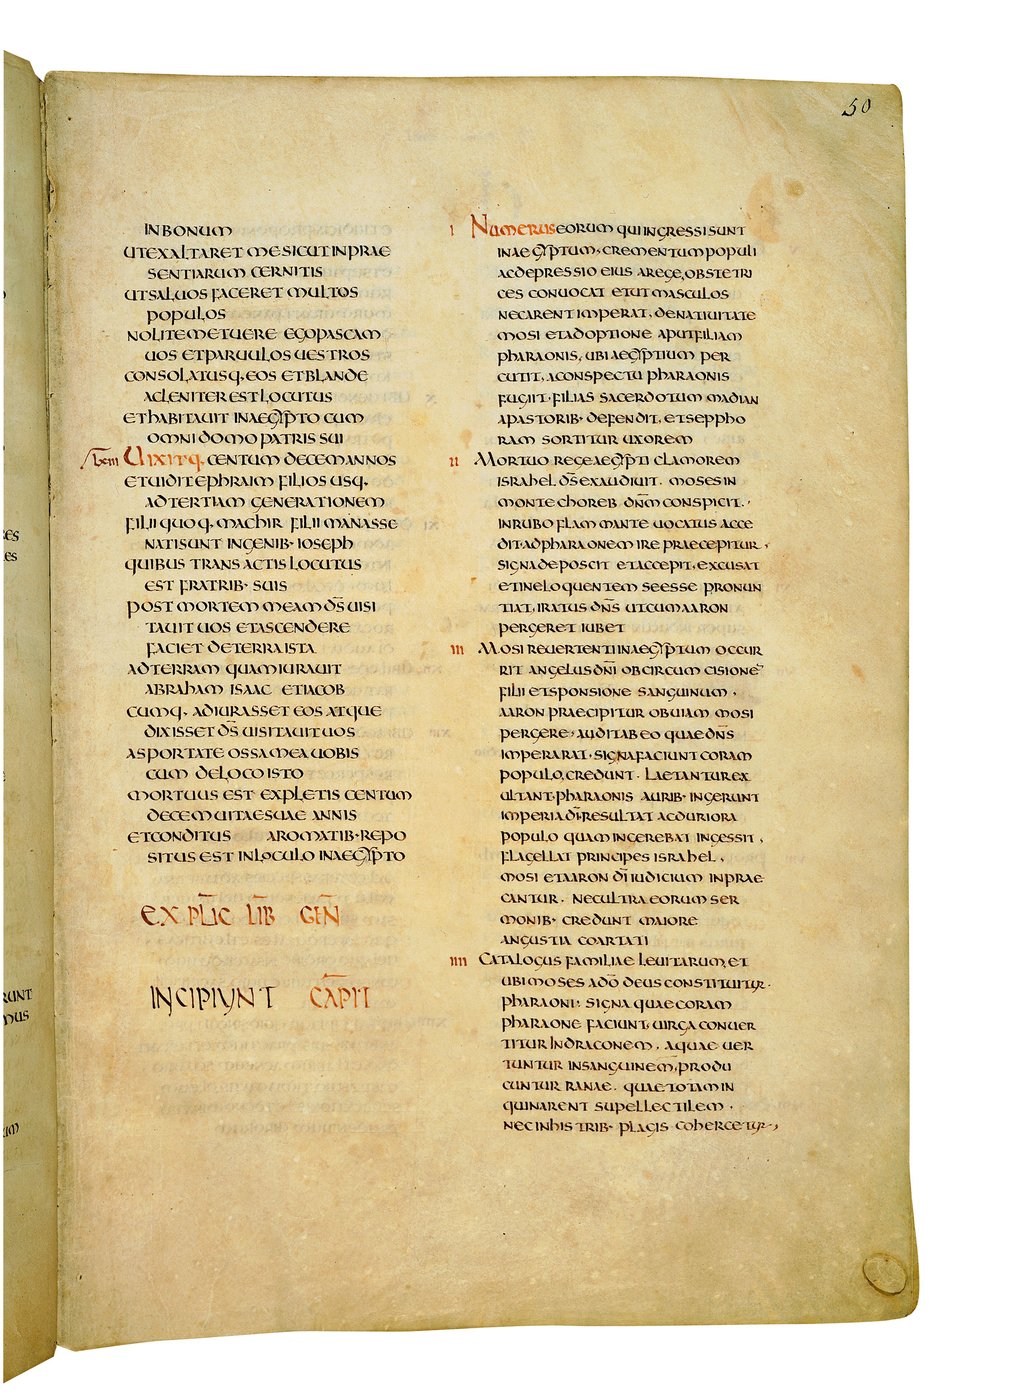 50
IN BONUM
UT EXALTARET ME SICUT IN PRAE
SENTIARUM CERNITIS
UT SALUOS FACERET MULTOS
POPULOS
NOLITE METUERE EGO PASCAM
UOS ET PARUULOS UESTROS
CONSOLATUSQ· EOS ET BLANDE
AC LENITER EST LOCUTUS
ET HABITAUIT IN AEGYPTO CUM
OMNI DOMO PATRIS SUI
UIXITQ· CENTUM DECEM ANNOS
ET UIDIT EPHRAIM FILIOS USQ·
AD TERTIAM GENERATIONEM
FILII QUOQ· MACHIR FILII MANASSE
NATI SUNT IN GENIB· IOSEPH
QUIBUS TRANSACTIS LOCUTUS
EST FRATRIB· SUIS
POST MORTEM MEAM D̄S UISI
TAUIT UOS ET ASCENDERE
FACIET DE TERRA ISTA
AD TERRAM QUAM IURAUIT
ABRAHAM ISAAC ET IACOB
CUMQ· ADIURASSET EOS ATQUE
DIXISSET D̄S UISITAUIT UOS
ASPORTATE OSSA MEA UOBIS
CUM DE LOCO ISTO
MORTUUS EST EXPLETIS CENTUM
DECEM UITAE SUAE ANNIS
ET CONDITUS AROMATIB· REPO
SITUS EST IN LOCULO IN AEGYPTO
EXPLIC̄ LIB̄ GEN̄
INCIPIUNT CAPIT̄
I NUMERUS EORUM QUI INGRESSI SUNT
IN AEGYPTUM· CREMENTUM POPULI
AC DEPRESSIO EIUS A REGE, OBSTETRI
CES CONUOCAT ET UT MASCULOS
NECARENT IMPERAT, DE NATIUITATE
MOSI ET ADOPTIONE APUT FILIAM
PHARAONIS, UBI AEGYPTIUM PER
CUTIT, A CONSPECTU PHARAONIS
FUGIIT· FILIAS SACERDOTUM MADIAN
A PASTORIB· DEFENDIT, ET SEPPHO
RAM SORTITUR UXOREM
II MORTUO REGE AEGYPTI CLAMOREM
ISRAHEL D̄S EXAUDIUIT. MOSES IN
MONTE CHOREB DN̄M CONSPICIT·
IN RUBO FLAMMANTE UOCATUS ACCE
DIT· AD PHARAONEM IRE PRAECEPITUR,
SIGNA DEPOSCIT ET ACCEPIT, EXCUSAT
ET INELOQUENTEM SE ESSE PRONUN
TIAT, IRATUS DN̄S UT CUM AARON
PERGERET IUBET
III MOSI REUERTENTI IN AEGYPTUM OCCUR
RIT ANGELUS DN̄I OB CIRCUMCISIONE
FILII ET SPONSIONE SANGUINUM,
AARON PRAECIPITUR OBUIAM MOSI
PERGERE, AUDIT AB EO QUAE DN̄S
IMPERARAT, SIGNA FACIUNT CORAM
POPULO, CREDUNT· LAETANTUR EX
ULTANT· PHARAONIS AURIB· INGERUNT
IMPERIA D̄I, RESULTAT AC DURIORA
POPULO QUAM INGEREBAT INGESSIT,
FLAGELLAT PRINCIPES ISRAHEL,
MOSI ET AARON D̄I IUDICIUM INPRAE
CANTUR· NEC ULTRA EORUM SER
MONIB· CREDUNT MAIORE
ANGUSTIA COARTATI
IIII CATALOGUS FAMILIAE LEUITARUM, ET
UBI MOSES A DŌ DEUS CONSTITUITUR·
PHARAONI· SIGNA QUAE CORAM
PHARAONE FACIUNT, UIRGA CONUER
TITUR IN DRACONEM. AQUAE UER
TUNTUR IN SANGUINEM, PRODU
CUNTUR RANAE. QUAE TOTAM IN
QUINARENT SUPELLECTILEM·
NEC IN HIS TRIB· PLAGIS COHERCETUR,